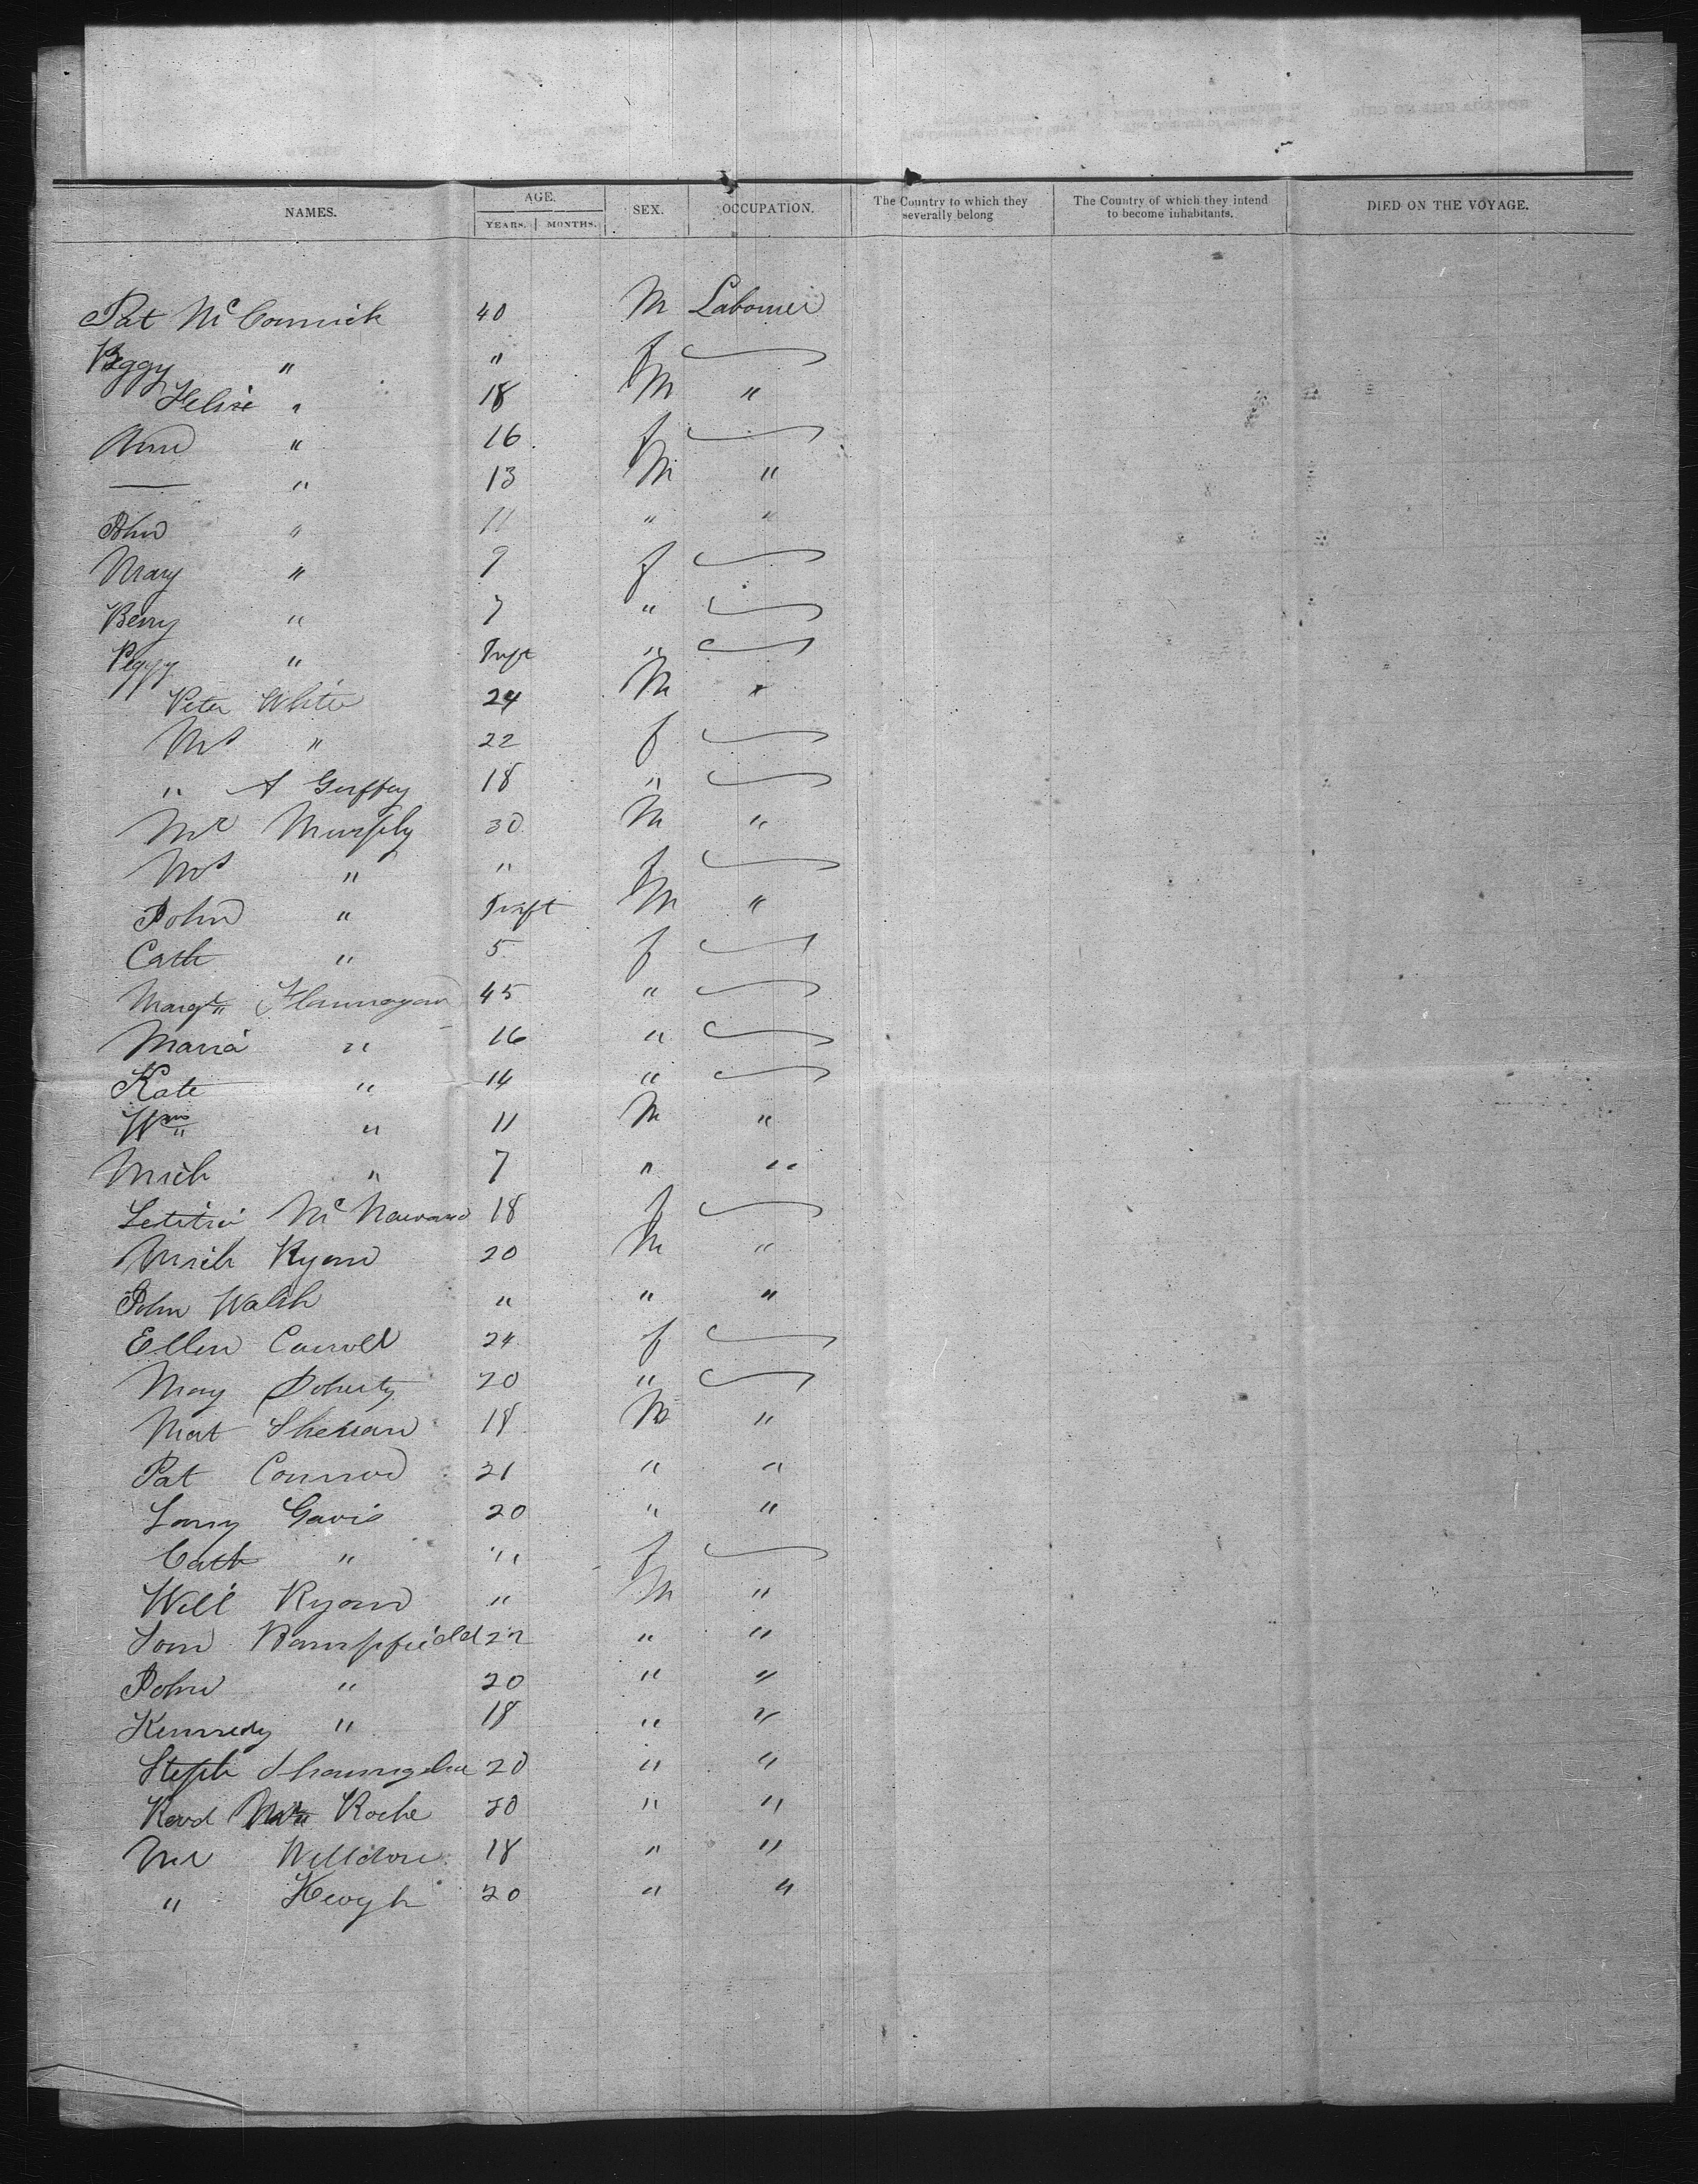 NAMES. AGE. YEARS. MONTHS. SEX. OCCUPATION. The Country to which they severally belong The Country of which they intend to become inhabitants. DIED ON THE VOYAGE.
Pat McCormick 40 M Labourer
Peggy " " f
" 18 M "
Ann " 16 f
— " 13 M "
John " 11 " "
Mary " 9 f
Berry " 7 "
Peggy " Inft "
Peter White 24 M "
Mrs " 22 f
" A Guffey 18 "
Mr Murphy 30 M "
Mrs " " f
John " Inft M "
Cath " 5 f
Margt Flannagan 45 "
Maria " 16 "
Kate " 14 "
Wm " 11 M "
Mich " 7 " "
Letitia 18 f
Mich Ryan 20 M "
John Walsh " " "
Ellen Carroll 24 f
May Doherty 20 "
Mat 18 M "
Pat 21 " "
Larry Gavis 20 " "
Cath " " f
Will Ryan " M "
Tom Bampfield 22 " "
John " 20 " "
Kennedy " 18 " "
Steph 20 " "
Roche 20 " "
Mr Welldon 18 " "
" Keogh 20 " "